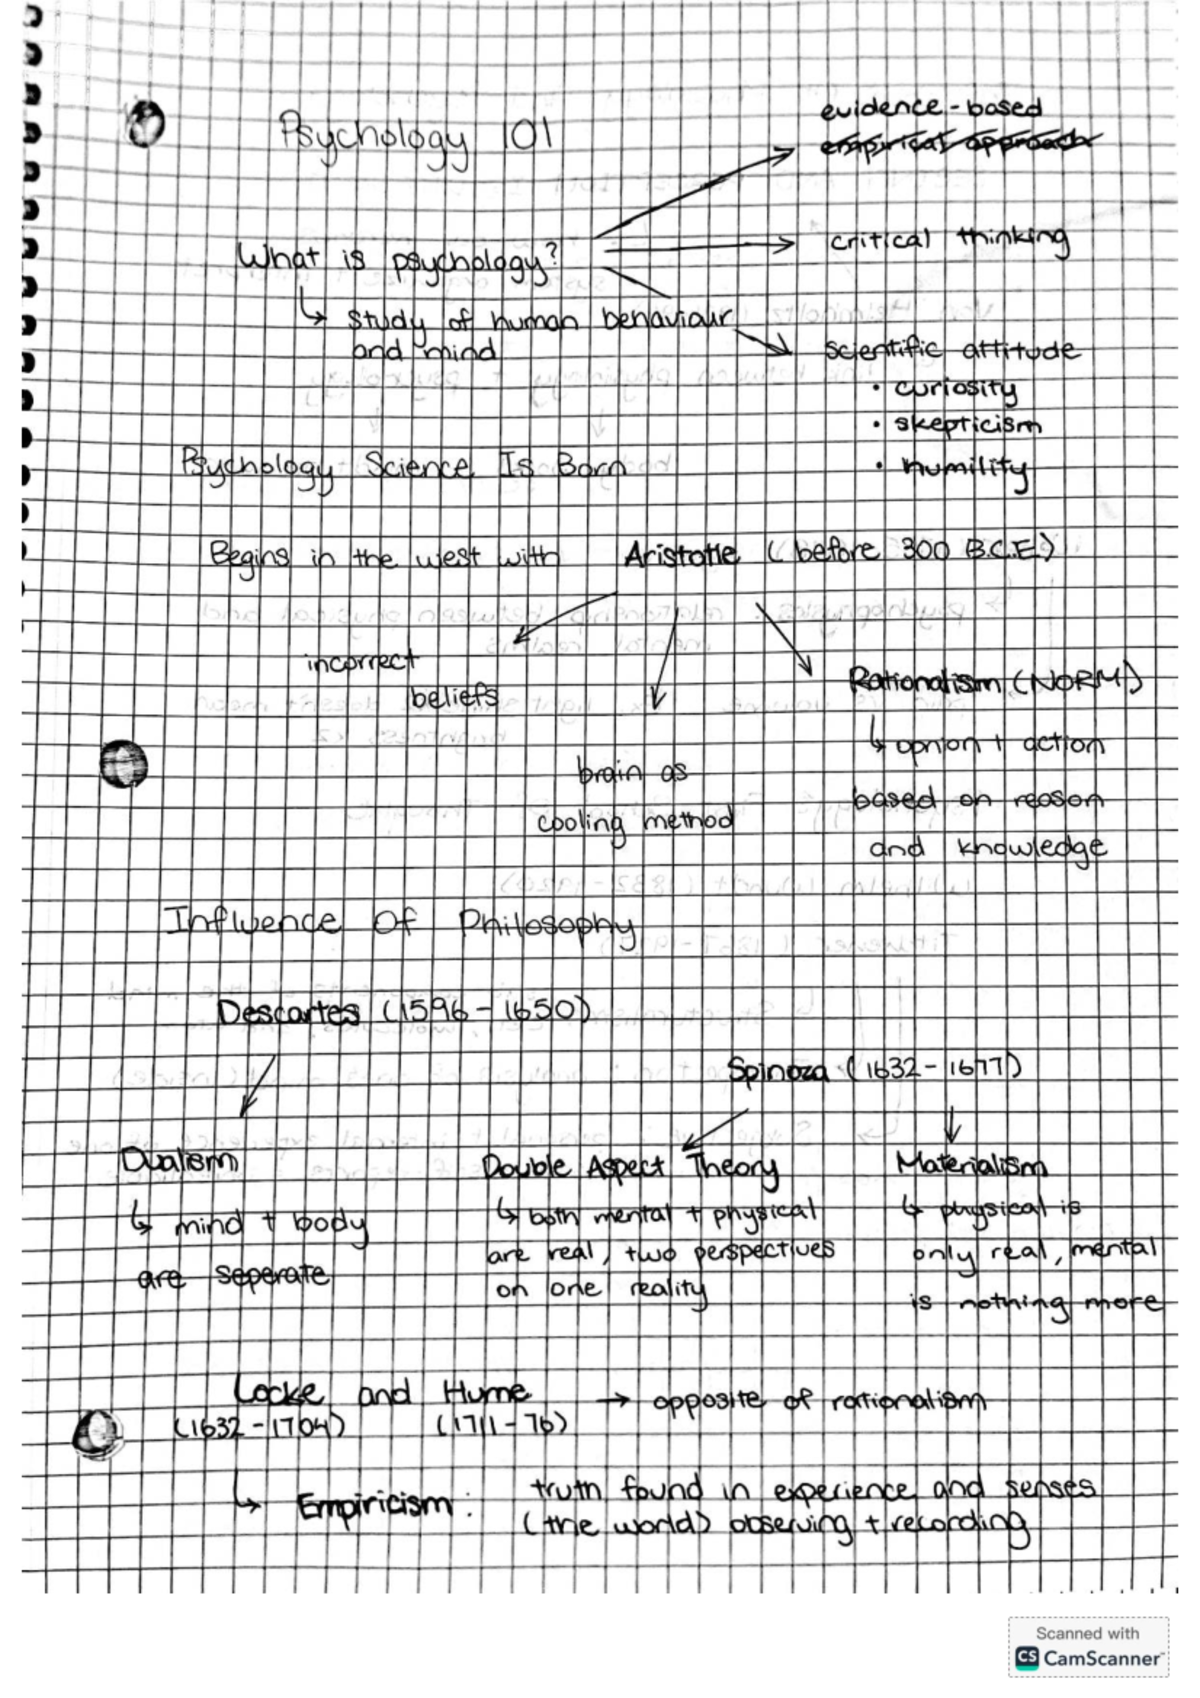 Psychology 101
evidence-based
empirical approach
What is psychology?
critical thinking
↳ study of human behaviour
and mind
scientific attitude
• curiosity
• skepticism
• humility
Psychology Science Is Born
Begins in the west with Aristotle (before 300 B.C.E)
incorrect
beliefs
brain as
cooling method
Rationalism (NORM)
↳ opnion + action
based on reason
and knowledge
Influence Of Philosophy
Descartes (1596-1650)
Spinoza (1632-1677)
Dualism
↳ mind + body
are seperate
Double Aspect Theory
↳ both mental + physical
are real, two perspectives
on one reality
Materialism
↳ physical is
only real, mental
is nothing more
Locke and Hume → opposite of rationalism
(1632-1704) (1711-76)
↳ Empiricism: truth found in experience and senses
(the world) observing + recording
Scanned with
CS CamScanner